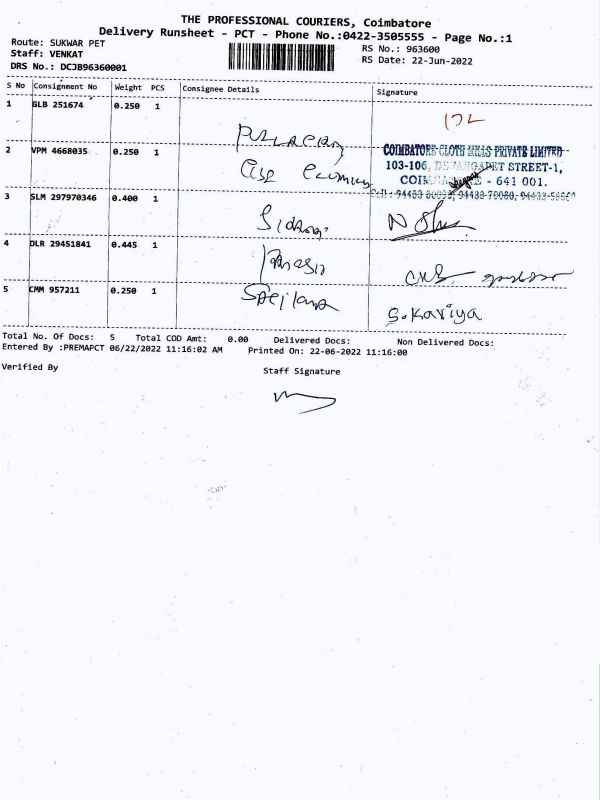 THE PROFESSIONAL COURIERS, Coimbatore
Delivery Runsheet - PCT - Phone No.:0422-3505555 - Page No.:1
Route: SUKWAR PET
Staff: VENKAT
DRS No.: DCJB96360001
RS No.: 963600
RS Date: 22-Jun-2022
S No Consignment No Weight PCS Consignee Details Signature
1 GLB 251674 0.250 1
2 VPM 4668035 0.250 1
COIMBATORE CLOTH MILLS PRIVATE LIMITED
103-106, STREET-1,
- 641 001.
3 SLM 297970346 0.400 1
4 DLR 29451841 0.445 1
5 CMM 957211 0.250 1 S.Kaviya
Total No. Of Docs: 5 Total COD Amt: 0.00 Delivered Docs: Non Delivered Docs:
Entered By :PREMAPCT 06/22/2022 11:16:02 AM Printed On: 22-06-2022 11:16:00
Verified By Staff Signature